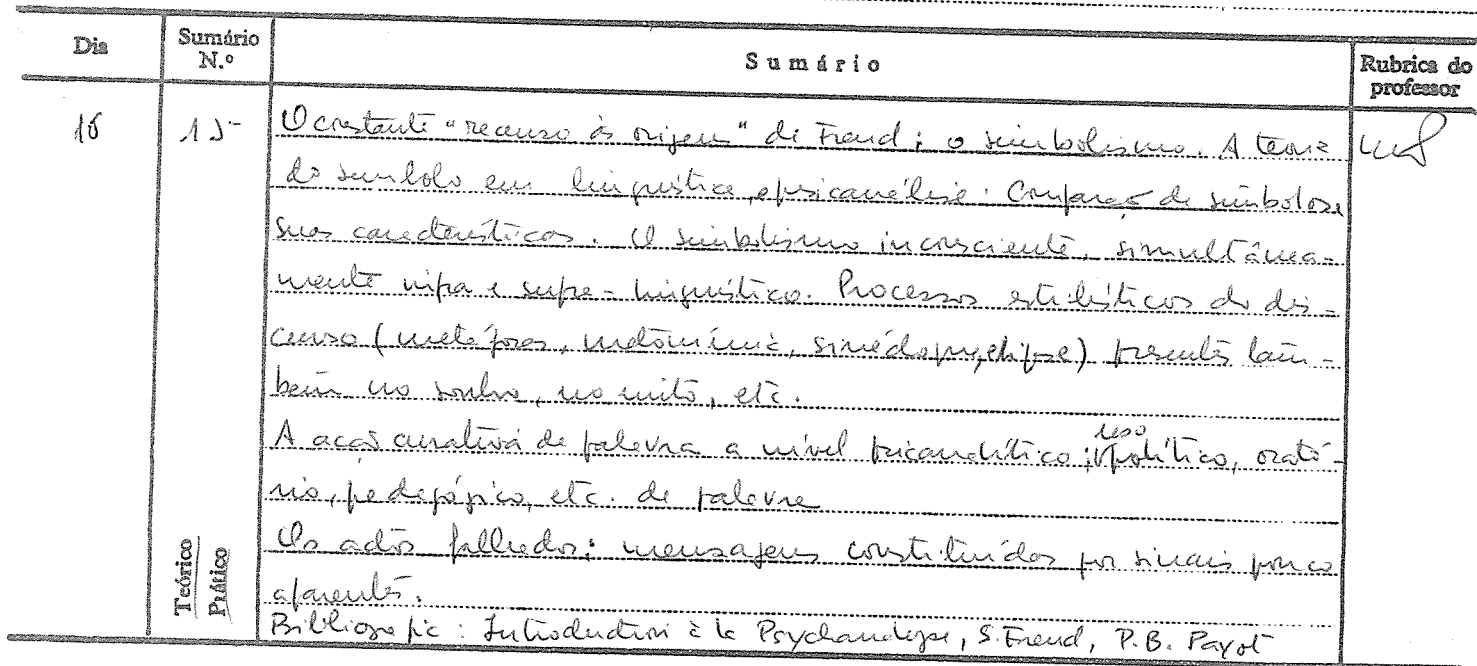 Dia Sumário N.º Sumário Rubrica do professor
16 15
O constante "recurso às origens" de Freud: o simbolismo. A teoria
do símbolo em linguística e psicanálise: Comparação de símbolos e
suas características. O simbolismo inconsciente, simultânea-
mente infra e supra-linguístico. Processos estilísticos do dis-
curso (metáforas, metonímia, sinédoque, elipse) presentes tam-
bém no sonho, no mito, etc.
A acção curativa da palavra a nível psicanalítico; uso político, orató-
rio, pedagógico, etc. da palavra
Os actos falhados: mensagens constituídas por sinais pouco
aparentes.
Bibliografia: Introduction à la Psychanalyse, S. Freud, P.B. Payot
Teórico
Prático